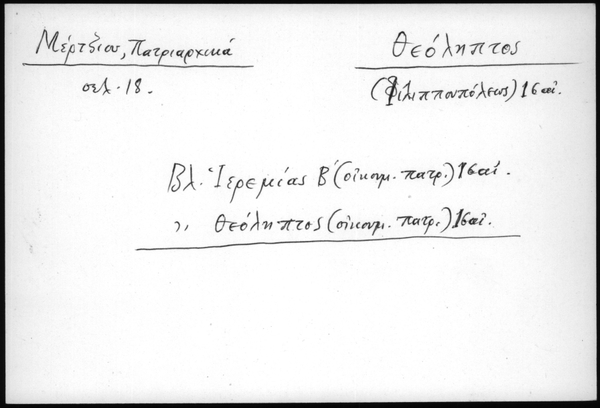 Μέρτζιου, Πατριαρχικά
σελ. 18.
Θεόληπτος
(Φιλιππουπόλεως) 16 αἰ.
Βλ. Ἱερεμίας Β' (οἰκουμ. πατρ.) 16 αἰ.
,, Θεόληπτος (οἰκουμ. πατρ.) 16 αἰ.